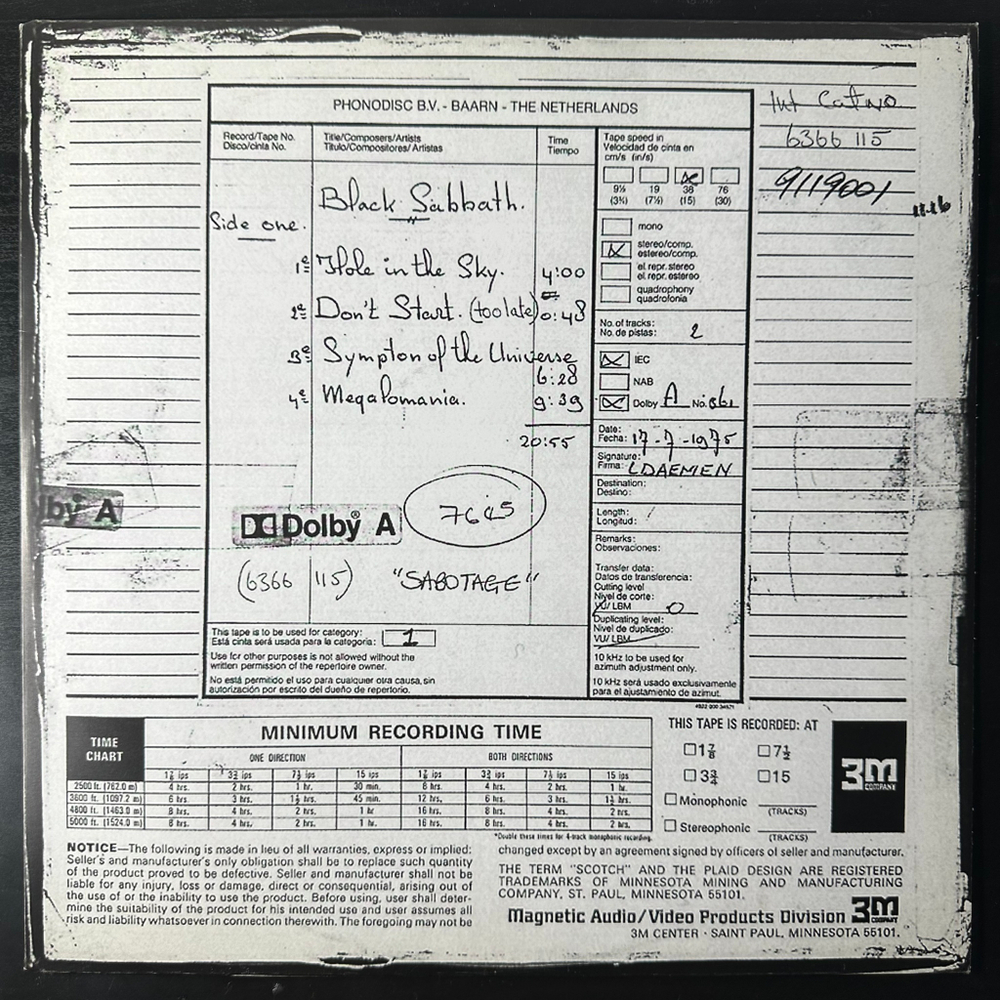 PHONODISC B.V. - BAARN - THE NETHERLANDS
Int Cat no
6366 115
9119001
11.16
Record/Tape No.
Disco/cinta No.
Title/Composers/Artists
Titulo/Compositores/Artistas
Time
Tiempo
Black Sabbath.
Side one.
1e Hole in the Sky. 4:00
2e Don't Start. (too late) 0:48
3e Sympton of the Universe
6:28
4e Megalomania. 9:39
20:55
lby A
Dolby® A
(6366 115) "SABOTAGE"
This tape is to be used for category: 1
Está cinta será usada para la categoria:
Use for other purposes is not allowed without the
written permission of the repertoire owner.
No está permitido el uso para cualquier otra causa, sin
autorización por escrito del dueño de repertorio.
Tape speed in
Velocidad de cinta en
cm/s (in/s)
9½ 19 38 76
(3¾) (7½) (15) (30)
mono
stereo/comp.
estereo/comp.
el. repr. stereo
el. repr. estereo
quadrophony
quadrofonia
No. of tracks: 2
No. de pistas:
IEC
NAB
Dolby A No:
Date:
Fecha: 17-7-1975
Signature:
Firma: LDAEMEN
Destination:
Destino:
Length:
Longitud:
Remarks:
Observaciones:
Transfer data:
Datos de transferencia:
Cutting level
Nivel de corte:
VU/LBM 0
Duplicating level:
Nivel de duplicado:
VU/LBM
10 kHz to be used for
azimuth adjustment only.
10 kHz será usado exclusivamente
para el ajustamiento de azimut.
TIME
CHART
MINIMUM RECORDING TIME
ONE DIRECTION BOTH DIRECTIONS
1⅞ ips 3¾ ips 7½ ips 15 ips 1⅞ ips 3¾ ips 7½ ips 15 ips
2500 ft. (762.0 m) 4 hrs. 2 hrs. 1 hr. 30 min. 8 hrs. 4 hrs. 2 hrs. 1 hr.
3600 ft. (1097.2 m) 6 hrs. 3 hrs. 1½ hrs. 45 min. 12 hrs. 6 hrs. 3 hrs. 1½ hrs.
4800 ft. (1463.0 m) 8 hrs. 4 hrs. 2 hrs. 1 hr. 16 hrs. 8 hrs. 4 hrs. 2 hrs.
5000 ft. (1524.0 m) 8 hrs. 4 hrs. 2 hrs. 1 hr. 16 hrs. 8 hrs. 4 hrs. 2 hrs.
*Double these times for 4-track monophonic recording.
THIS TAPE IS RECORDED: AT
1⅞ 7½
3¾ 15
Monophonic
(TRACKS)
Stereophonic
(TRACKS)
3M
COMPANY
NOTICE—The following is made in lieu of all warranties, express or implied:
Seller's and manufacturer's only obligation shall be to replace such quantity
of the product proved to be defective. Seller and manufacturer shall not be
liable for any injury, loss or damage, direct or consequential, arising out of
the use of or the inability to use the product. Before using, user shall deter-
mine the suitability of the product for his intended use and user assumes all
risk and liability whatsoever in connection therewith. The foregoing may not be
changed except by an agreement signed by officers of seller and manufacturer.
THE TERM "SCOTCH" AND THE PLAID DESIGN ARE REGISTERED
TRADEMARKS OF MINNESOTA MINING AND MANUFACTURING
COMPANY, ST. PAUL, MINNESOTA 55101.
Magnetic Audio/Video Products Division 3M COMPANY
3M CENTER · SAINT PAUL, MINNESOTA 55101.